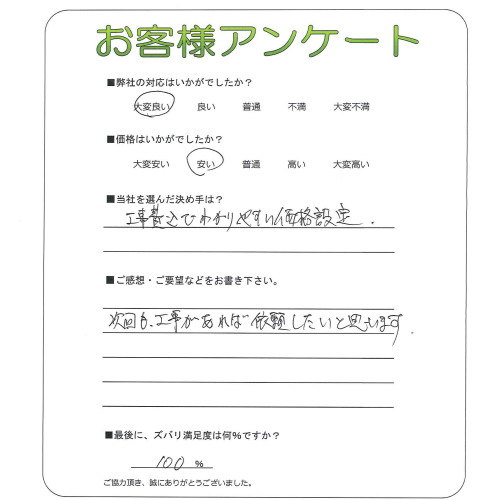 お客様アンケート
■弊社の対応はいかがでしたか？
大変良い 良い 普通 不満 大変不満
■価格はいかがでしたか？
大変安い 安い 普通 高い 大変高い
■当社を選んだ決め手は？
工事費込でわかりやすい価格設定。
■ご感想・ご要望などをお書き下さい。
次回も、工事があれば依頼したいと思います。
■最後に、ズバリ満足度は何%ですか？
100 %
ご協力頂き、誠にありがとうございました。